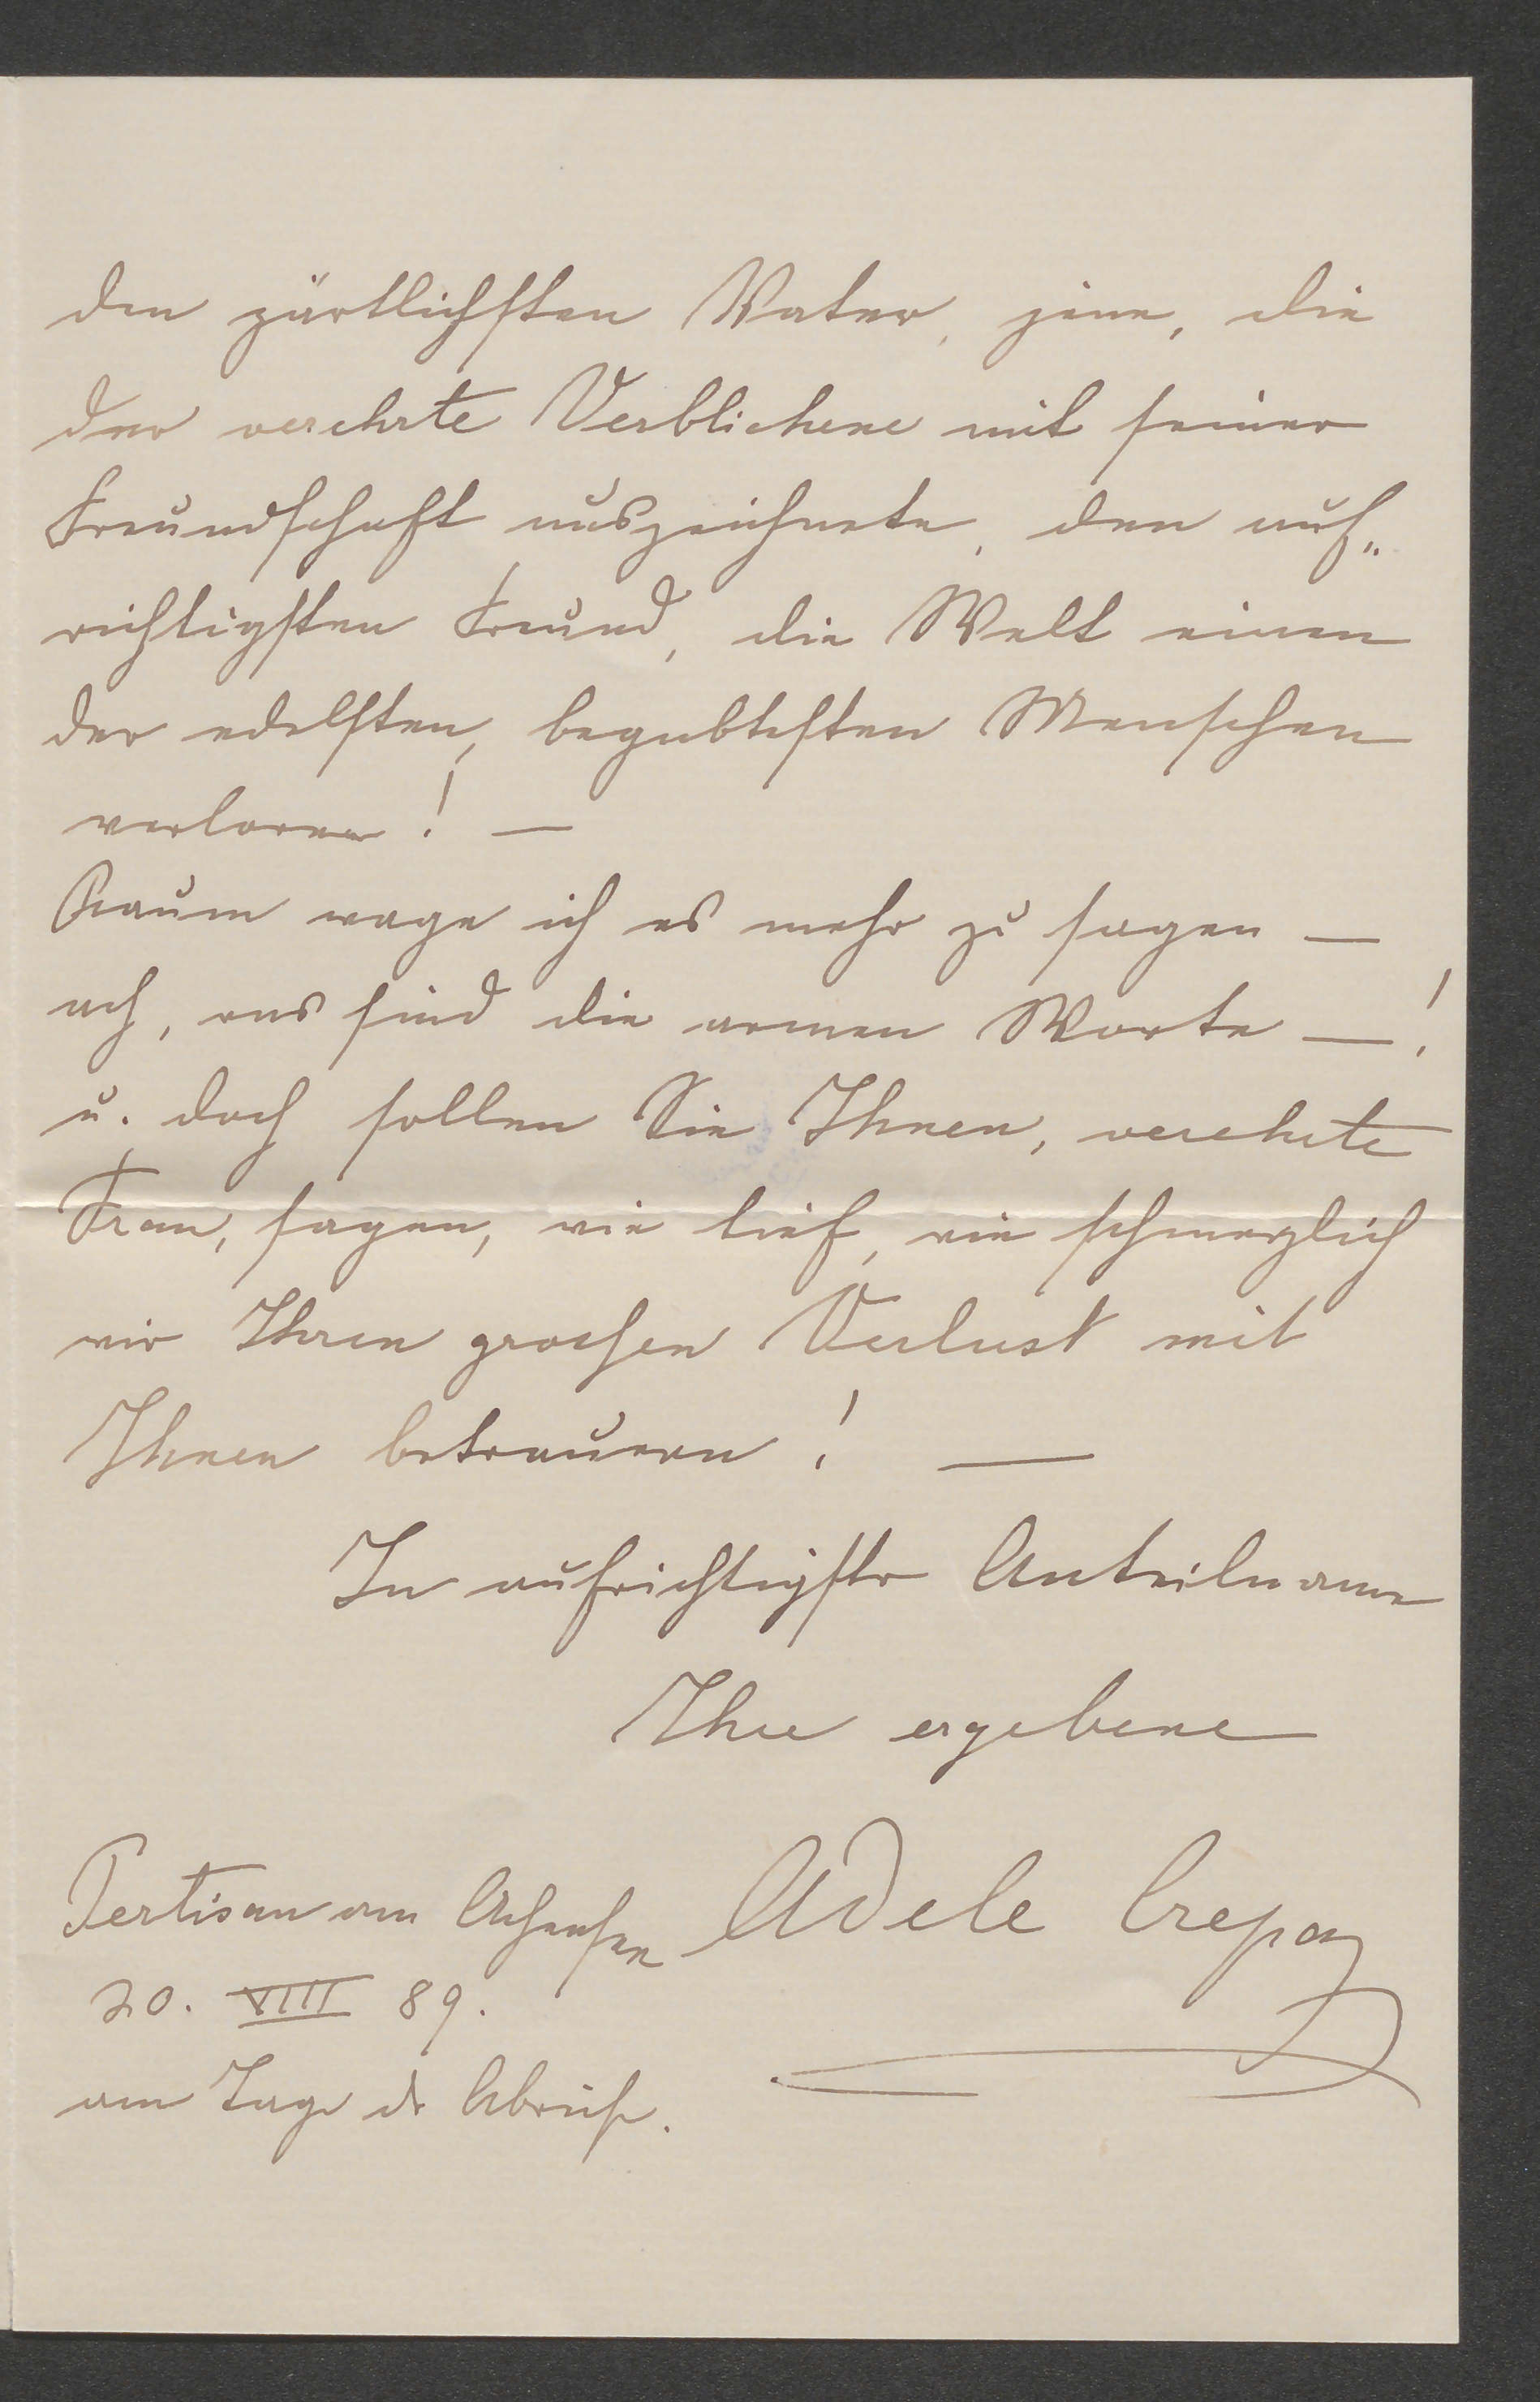 den zärtlichsten Vater, jene, die
der verehrte Verblichene mit seiner
Freundschaft auszeichnete, den auf„
richtigsten Freund, die Welt einen
der edelsten, begabtesten Menschen
verloren! —
Kaum wage ich es mehr zu sagen —
ach, was sind die armen Worte —!
u. doch sollen Sie Ihnen, verehrte
Frau, sagen, wie tief, wie schmerzlich
wir Ihren grossen Verlust mit
Ihnen betrauern! —
In aufrichtigster Anteilname
Ihre ergebene
Pertisau am Achensee Adele Crepaz
20. VIII 89.
am Tage der Abreise.